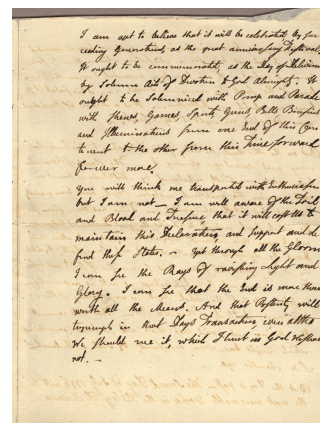 I am apt to believe that it will be celebrated, by suc
ceeding Generations, as the great anniversary Festival.
It ought to be commemorated, as the Day of Deliveran
by Solemn Acts of Devotion to God Almighty. It
ought to be solemnized with Pomp and Parade
with Shews, Games, Sports, Guns, Bells, Bonfires
and Illuminations from one End of this Conti
nent to the other from this Time forward
forever more.
You will think me transported with Enthusiasm
but I am not. — I am well aware of the Toil
and Blood and Treasure, that it will cost Us to
maintain this Declaration, and support and de
fend these States. — Yet through all the Gloom
I can see the Rays of ravishing Light and
Glory. I can see that the End is more than
worth all the Means. And that Posterity will
tryumph in that Days Transaction, even altho
We should rue it, which I trust in God We shall
not. —